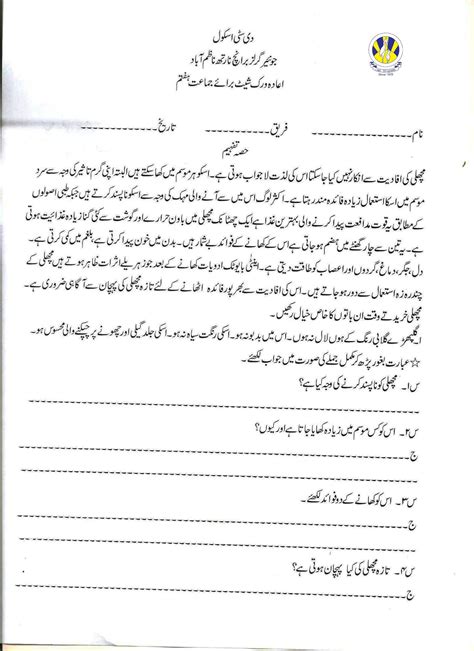 دی سٹی اسکول
جونیئر گرلز برانچ نارتھ ناظم آباد
اعادہ ورک شیٹ برائے جماعت ہفتم
نام۔ فریق۔ تاریخ۔
حصہ تفہیم
مچھلی کی افادیت سے انکار نہیں کیا جا سکتا اس کی لذت لاجواب ہوتی ہے۔ اسکو ہر موسم میں کھا سکتے ہیں البتہ اپنی گرم تاثیر کی وجہ سے سرد
موسم میں اسکا استعمال زیادہ فائدہ مند رہتا ہے۔ اکثر لوگ اس میں سے آنے والی مہک کی وجہ سے اسکو نا پسند کرتے ہیں جبکہ طبی اصولوں
کے مطابق یہ قوت مدافعت پیدا کرنے والی بہترین غذا ہے ایک چھٹانک مچھلی میں باون حرارے اور گوشت سے کئی گنا زیادہ غذائیت ہوتی
ہے۔ یہ تین سے چار گھنٹے میں ہضم ہو جاتی ہے اس کے کھانے کے فوائد بے شمار ہیں۔ بدن میں خون پیدا کرتی ہے، بلغم میں کمی کرتی ہے۔
دل، جگر، دماغ، گردوں اور اعصاب کو طاقت دیتی ہے۔ اینٹی بائیوٹک ادویات کھانے کے بعد جو زہریلے اثرات ظاہر ہوتے ہیں مچھلی کے
چند روزہ استعمال سے دور ہو جاتے ہیں۔ اس کی افادیت سے بھرپور فائدہ اٹھانے کے لئے تازہ مچھلی کی پہچان سے آگاہی ضروری ہے۔
مچھلی خریدتے وقت ان باتوں کا خاص خیال رکھیں۔
۱۔ گلپھڑے گلابی رنگ کے ہوں لال نہ ہوں۔ اس میں بدبو نہ ہو۔ اسکی رنگت سیاہ نہ ہو۔ اسکی جلد گیلی اور چھونے پر چپکنے والی محسوس ہو۔
☆ عبارت بغور پڑھ کر مکمل جملے کی صورت میں جواب لکھئے۔
س۱۔ مچھلی کو نا پسند کرنے کی وجہ کیا ہے؟
ج
س۲۔ اس کو کس موسم میں زیادہ کھایا جاتا ہے اور کیوں؟
ج
س۳۔ اس کو کھانے کے دو فوائد لکھئے۔
ج
س۴۔ تازہ مچھلی کی کیا پہچان ہوتی ہے؟
ج